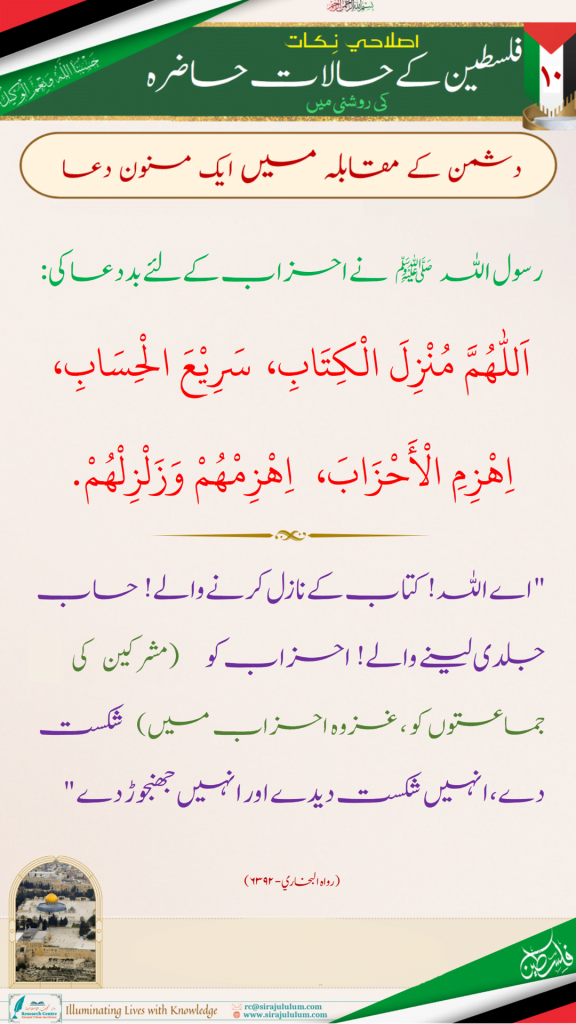 بسم الله الرحمن الرحيم
اصلاحي نِكات
فلسطین کے حالات حاضرہ
کی روشنی میں
١٠
حَسْبُنَا اللَّهُ وَنِعْمَ الْوَكِيلُ
دشمن کے مقابلہ میں ایک مسنون دعا
رسول اللہ ﷺ نے احزاب کے لئے بددعا کی:
اَللّٰهُمَّ مُنْزِلَ الْكِتَابِ، سَرِيْعَ الْحِسَابِ،
اِهْزِمِ الْأَحْزَابَ، اِهْزِمْهُمْ وَزَلْزِلْهُمْ.
"اے اللہ! کتاب کے نازل کرنے والے! حساب
جلدی لینے والے! احزاب کو (مشرکین کی
جماعتوں کو، غزوہ احزاب میں) شکست
دے، انہیں شکست دیدے اور انہیں جھنجوڑ دے"
(رواه البخاري - ٦٣٩٢)
فلسطين
Research Centre
Illuminating Lives with Knowledge
rc@sirajululum.com
www.sirajululum.com